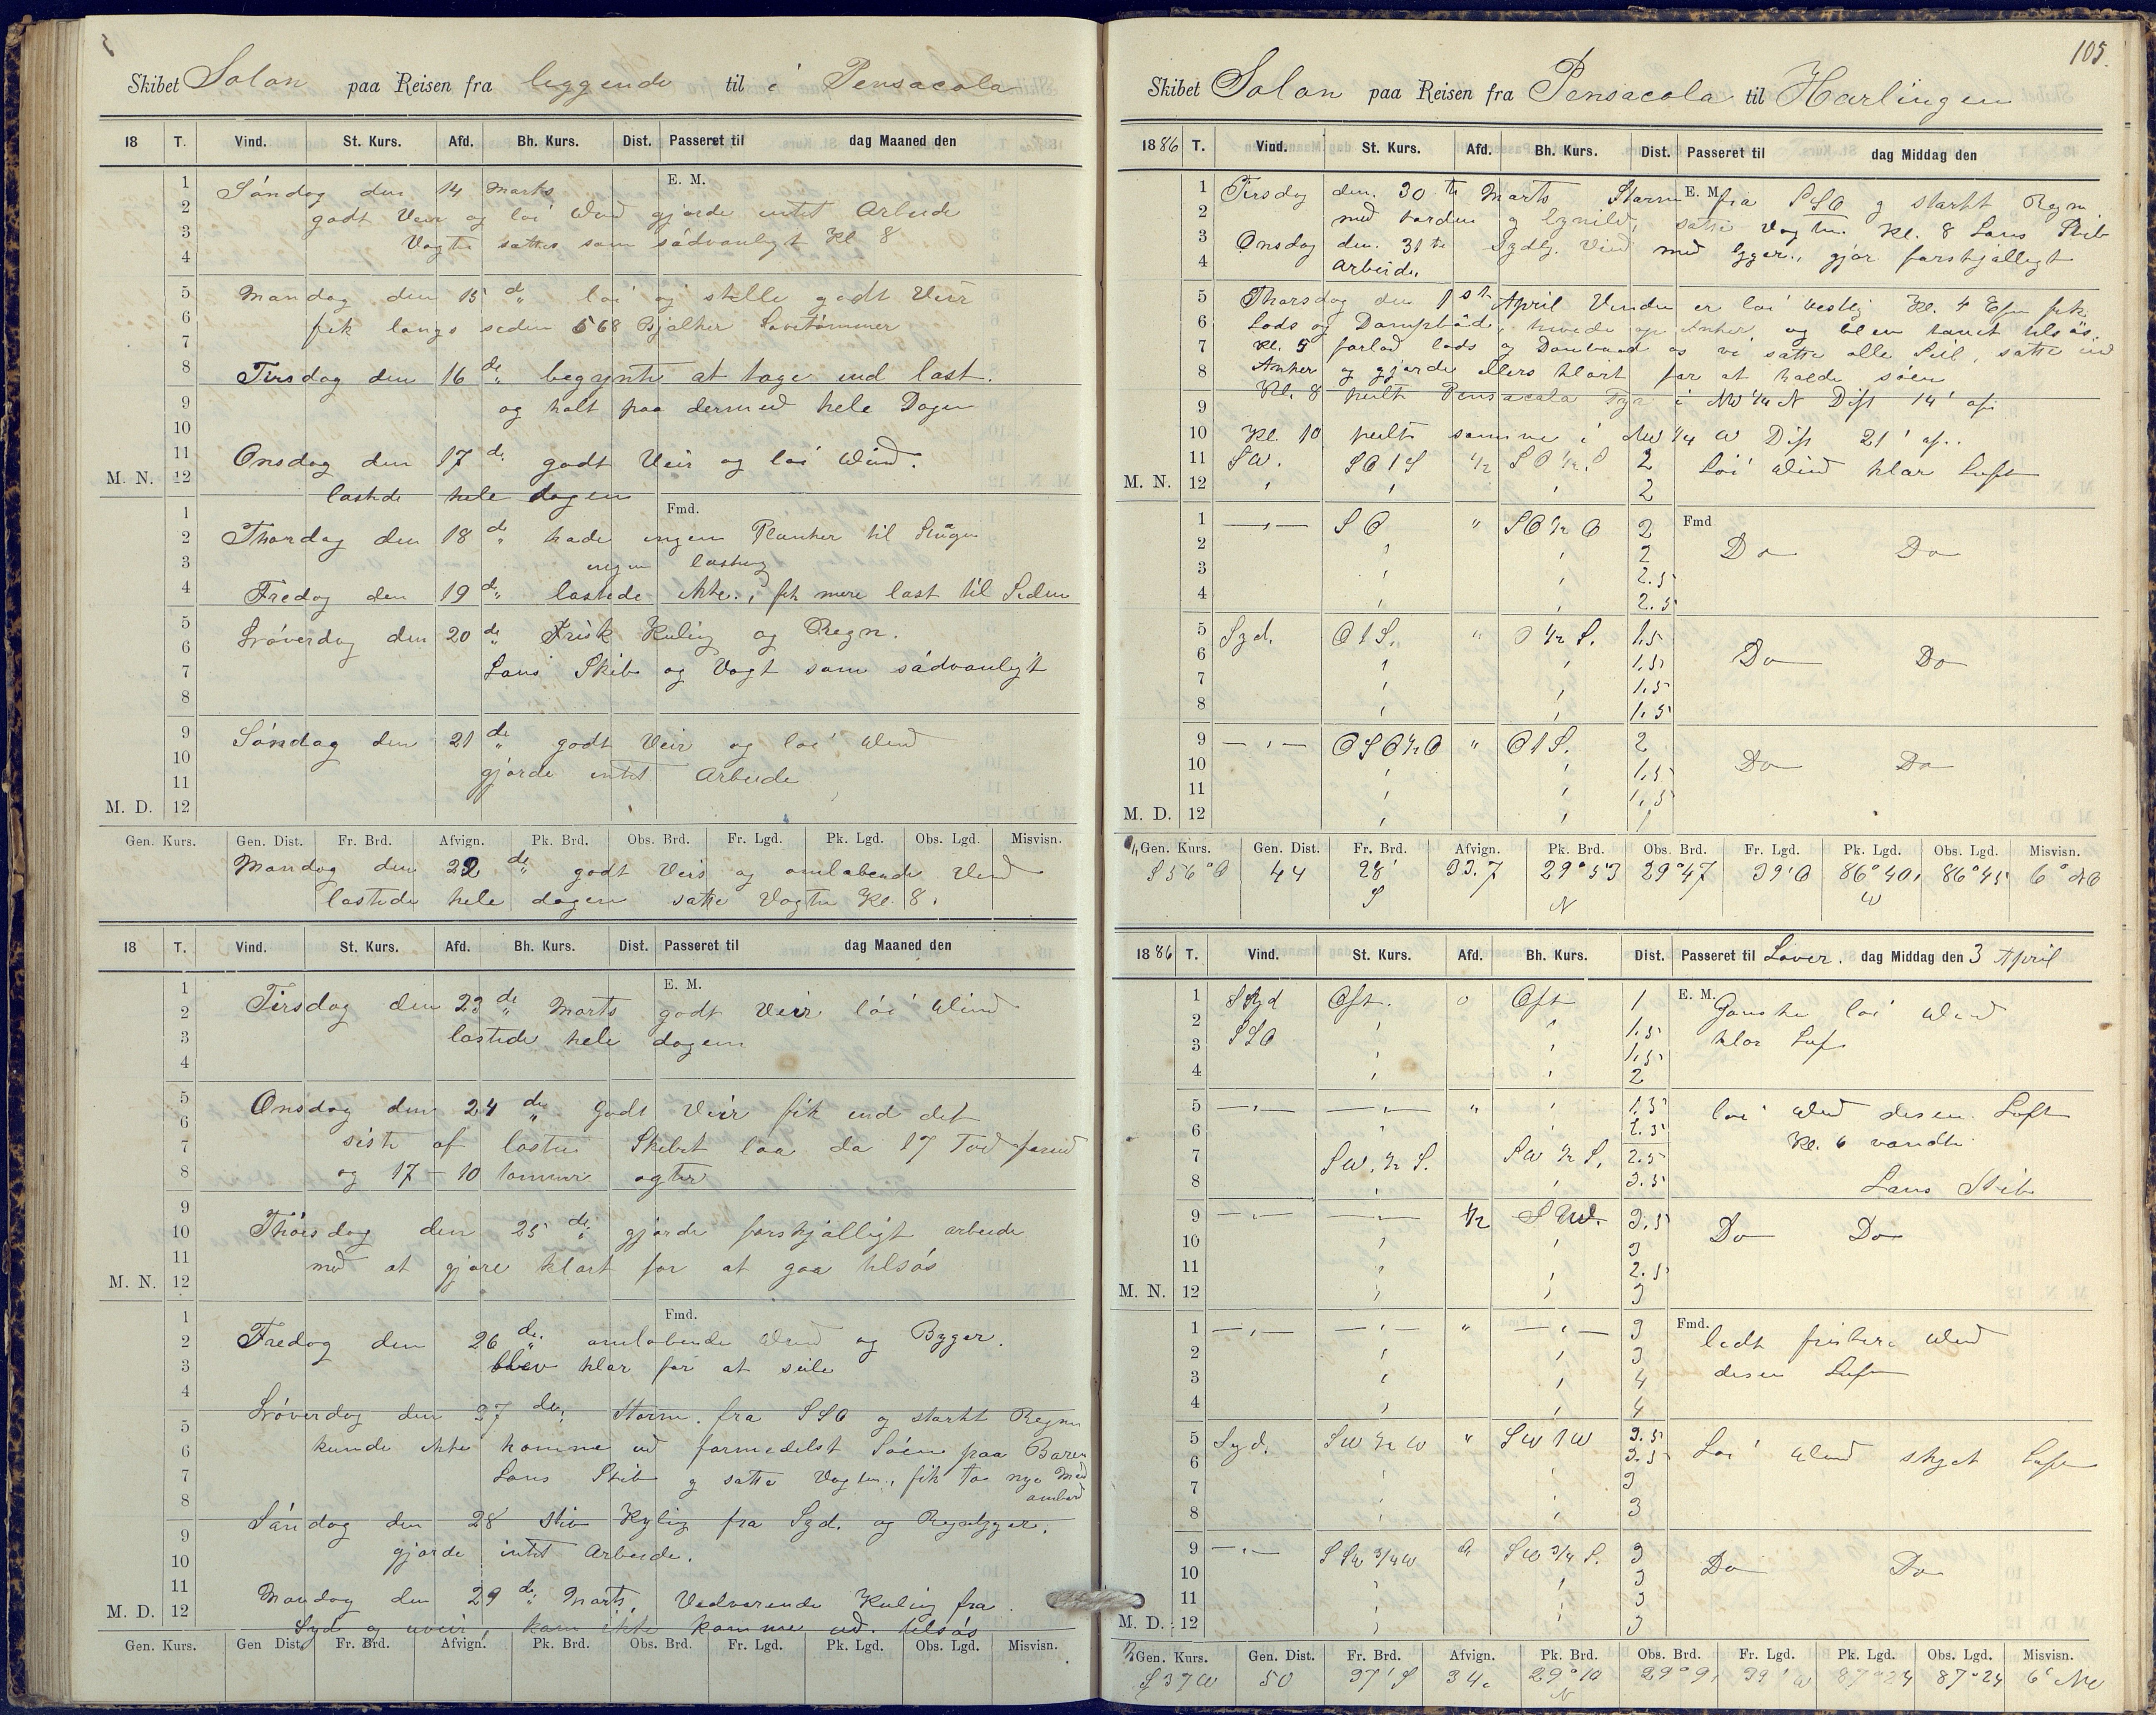 Skibet Solon paa Reisen fra leggende til i Pensacola
18 T. Vind. St. Kurs. Afd. Bh. Kurs. Dist. Passeret til dag Maaned den
E. M.
Søndag den 14 Marts
godt Veir og løi Wind gjorde intet Arbeide
Vagten sattes som sådvanligt Kl 8
Mandag den 15 de løi og stille godt Veir
fik langs siden 568 Bjälker Savetømmer
Tirsdag den 16 de begyndte at tage ind last.
og holt paa dermed hele Dagen
Onsdag den 17 de godt Veir og løi Wind.
M. N.
lastede hele dagen
Fmd.
Thorsdag den 18 de hade ingen Planker til
ingen lastning
Fredag den 19 de lastede ikke., fik mere last til Siden
Løverdag den 20 de Frisk Kuling og Regn.
Lens Skib og Vagt som sådvanligt
Søndag den 21 de godt Veir og løi Wind
gjorde intet Arbeide
M. D.
Gen. Kurs. Gen. Dist. Fr. Brd. Afvign. Pk. Brd. Obs. Brd. Fr. Lgd. Pk. Lgd. Obs. Lgd. Misvisn.
Mandag den 22 de godt Veir og omløbende Vind
lastede hele dagen satte Vagten Kl. 8.
18 T. Vind. St. Kurs. Afd. Bh. Kurs. Dist. Passeret til dag Maaned den
E. M.
Tirsdag den 23 de Marts godt Veir løi Wind
lastede hele dagen
Onsdag den 24 de Godt Veir fik ind det
siste af lasten Skibet laa da 17 Fod forud
og 17 - 10 tommer agter
Thorsdag den 25 de gjorde forskjälligt arbeide
med at gjøre klart for at gaa tilsøs
M. N.
Fmd.
Fredag den 26 de omløbende Wind og Byger.
blev klar for at seile
Løverdag den 27 de, Storm. fra SSO og starkt Regn
kunde ikke komme ud formedelst Søen paa Baren
Lens Skib og satte Vagten, fik to nye Mand
ombord
Søndag den 28 stiv Kuling fra Syd. og Regnbyger.
gjorde intet Arbeide.
Mandag den 29 de Marts, Vedvarende Kuling fra
M. D.
Syd og uveir, kan ikke komme ud. tilsøs
Gen. Kurs. Gen Dist. Fr. Brd. Afvign. Pk. Brd. Obs. Brd. Fr. Lgd. Pk. Lgd. Obs. Lgd. Misvisn.
105.
Skibet Solon paa Reisen fra Pensacola til Harlingen
1886 T. Vind. St. Kurs. Afd. Bh. Kurs. Dist. Passeret til dag Middag den
Tirsdag den. 30 te Marts Storm E. M. fra SSO og starkt Regn
med torden og lynild, satte Vagten Kl. 8 Lens Skib
Onsdag den. 31 te Sydlg. Vind med bygger., gjør forskjälligt
Arbeid.
Thorsdag den 1 st April Vinden er løi vestlig Kl. 4 Efm fik
Lods og Dampbåd, hivede op Anker og blev tauet tilsøs,
Kl. 5 forlod lods og Dambaad os vi satte alle Seil, satte ind
Anker og gjorde ellers klart for at holde søen
Kl. 8 peilte Pensacola Fyr i NW 1/4 N Dist 14' af.
Kl. 10 peilte samme i NW 1/4 W Dist 21' af.
11 SW. SO 1 S 1/2 SO 1/2 S 2 Løi Wind klar Luft
M. N. 12 2
1 SO " SO 1/2 O 2 Fmd
2 2 Do Do
3 2.5
4 2.5
5 Syd. O 1 S. " O 1/2 S. 1,5
6 1,5 Do Do
7 1,5
8 1,5
9 OSO 1/2 O " O 1 S. 2
10 1,5 Do Do
11 1,5
M. D. 12 1
Gen. Kurs. Gen. Dist. Fr. Brd. Afvign. Pk. Brd. Obs. Brd. Fr. Lgd. Pk. Lgd. Obs. Lgd. Misvisn.
S 56° O 44 28' S 33.7 29°53 N 29°47 39' O 86°40, W 86°45 6° NO
1886 T. Vind. St. Kurs. Afd. Bh. Kurs. Dist. Passeret til Løver. dag Middag den 3 April
1 Syd Ost. 0 Ost 1 E. M. Ganske løi Wind
2 SSO 1.5 klar Luft
3 1,5
4 2
5 " 1.5 løi Wind disen Luft
6 Kl. 6 vendte
7 SW. 1/2 S. SW 1/2 S. 2.5
8 3.5 Lens Skib
9 1/2 SW. 3.5 Do Do
10 3
11 2.5
M. N. 12 3
1 " 3 Fmd. lidt friskere Wind
2 3
3 4 disen Luft
4 4
5 Syd. SW 1/2 W " SW 1 W 3.5 Løi Wind skyet Luft
6 3.5
7 3
8 3
9 SSW 3/4 W SW 3/4 S. 3 Do Do
10 3
11 3
M. D. 12 3
Gen. Kurs. Gen. Dist. Fr. Brd. Afvign. Pk. Brd. Obs. Brd. Fr. Lgd. Pk. Lgd. Obs. Lgd. Misvisn.
S 37 W 50 37' S 34. 29°10 N 29°9, 39' W 87°24 87°24 6°